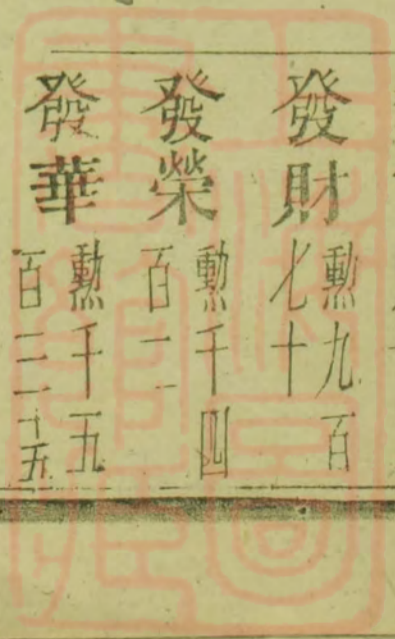 發財 勲九百
七十
發榮 勲千四
百一一
發華 勲千五
百三一十五